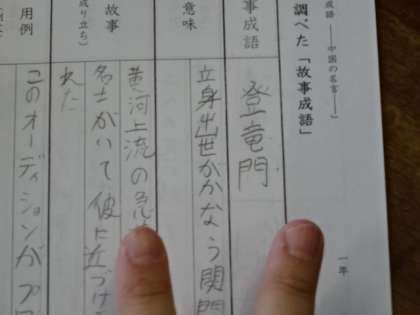 成語 ――中国の名言――』
調べた「故事成語」
一年
事成語
登竜門
意味
立身出世がかなう関門
故事
成り立ち)
黄河上流の急
名士がいて彼に近づけ
れた
用例
このオーディションがプロ